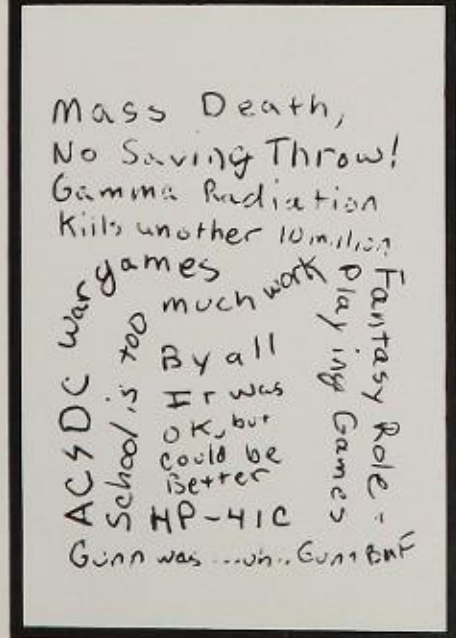 Mass Death,
No Saving Throw!
Gamma Radiation
Kiils unother 10 million
AC$DC war games
School is too much work
Fantasy Role-
Playing Games
By all
It was
OK, but
could be
Better
HP-41C
Gunn was ...un..